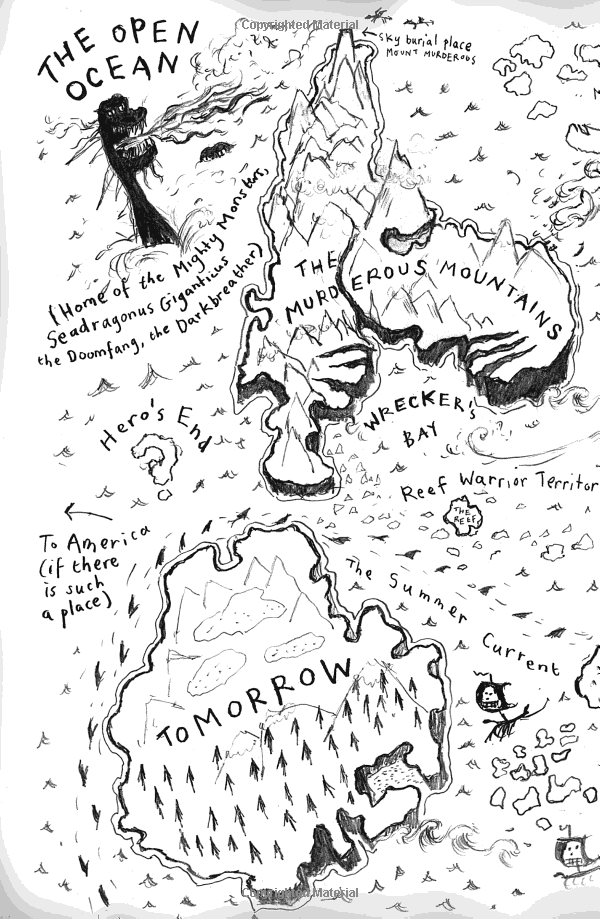 Copyrighted Material
THE OPEN
OCEAN
sky burial place
MOUNT MURDEROUS
(Home of the Mighty Monsters,
Seadragonus Giganticus
the Doomfang, the Darkbreather)
THE
MURDEROUS MOUNTAINS
Hero's End
WRECKER'S
BAY
Reef Warrior Territor
THE
REEF
To America
(if there
is such
a place)
The Summer Current
TOMORROW
Copyrighted Material